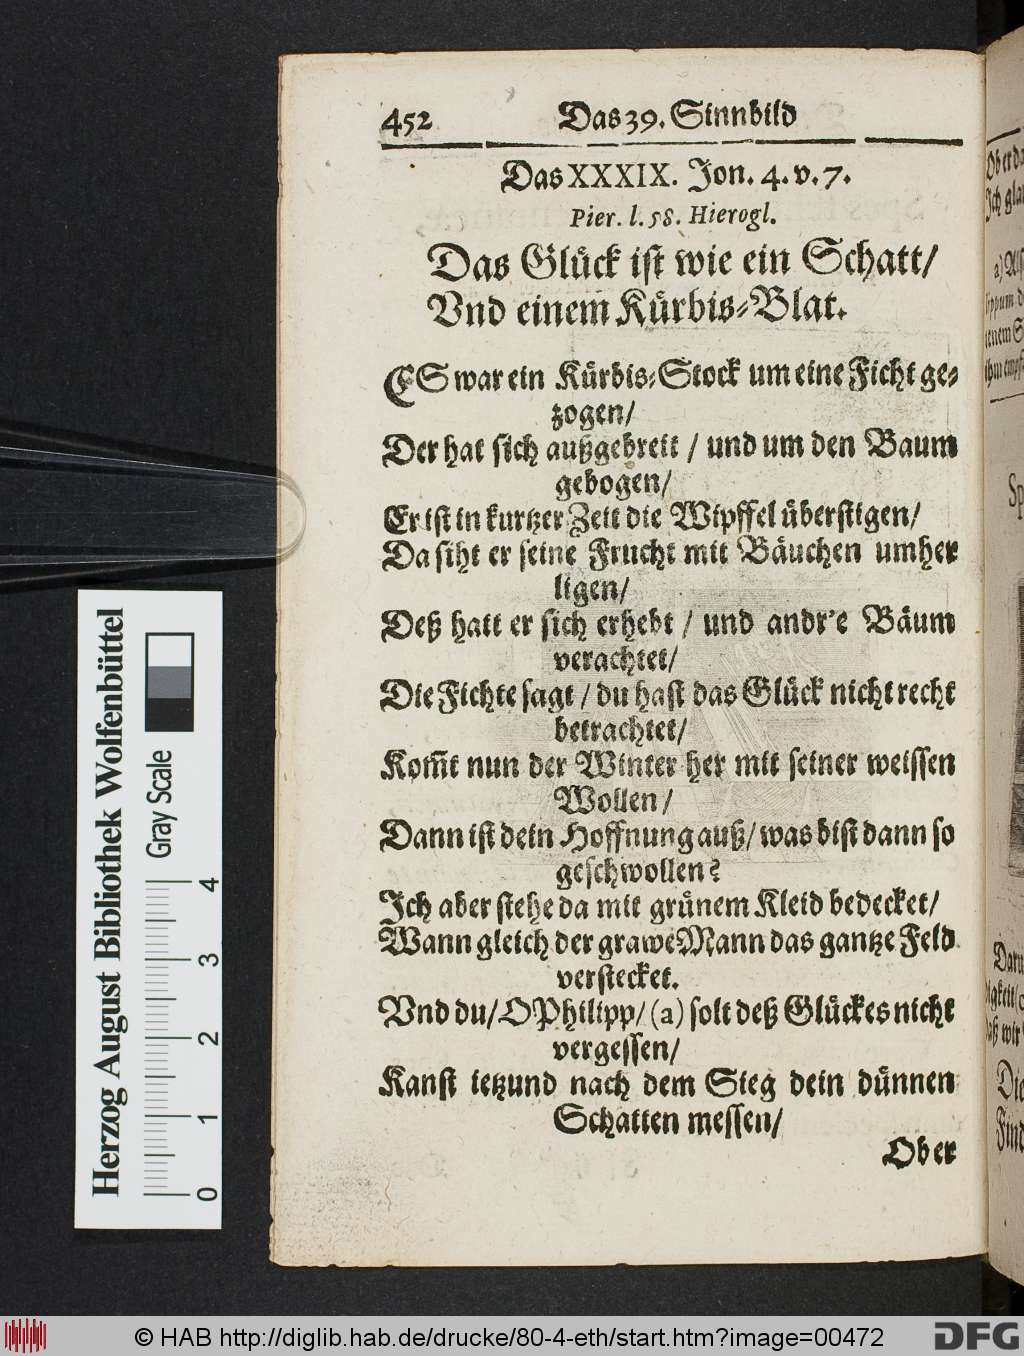 452 Das 39. Sinnbild
Das XXXIX. Jon. 4. v. 7.
Pier. l. 58. Hierogl.
Das Glück ist wie ein Schatt/
Vnd einem Kürbis-Blat.
ES war ein Kürbis-Stock um eine Ficht ge-
zogen/
Der hat sich außgebreit / und um den Baum
gebogen/
Er ist in kurtzer Zeit die Wipffel überstigen/
Da siht er seine Frucht mit Bäuchen umher
ligen/
Deß hatt er sich erhebt / und andr'e Bäum
verachtet/
Die Fichte sagt / du hast das Glück nicht recht
betrachtet/
Kom̄t nun der Winter her mit seiner weissen
Wollen/
Dann ist dein Hoffnung auß/ was bist dann so
geschwollen?
Ich aber stehe da mit grünem Kleid bedecket/
Wann gleich der grawe Mann das gantze Feld
verstecket.
Vnd du/ O Philipp/ (a) solt deß Glückes nicht
vergessen/
Kanst ietzund nach dem Sieg dein dünnen
Schatten messen/
Ober
Herzog August Bibliothek Wolfenbüttel
Gray Scale
0 1 2 3 4
© HAB http://diglib.hab.de/drucke/80-4-eth/start.htm?image=00472
DFG